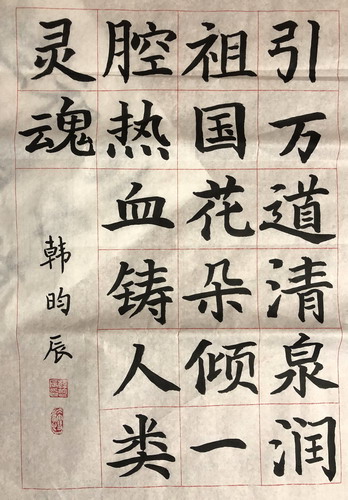 引万道清泉润
祖国花朵倾一
腔热血铸人类
灵魂
韩昀辰